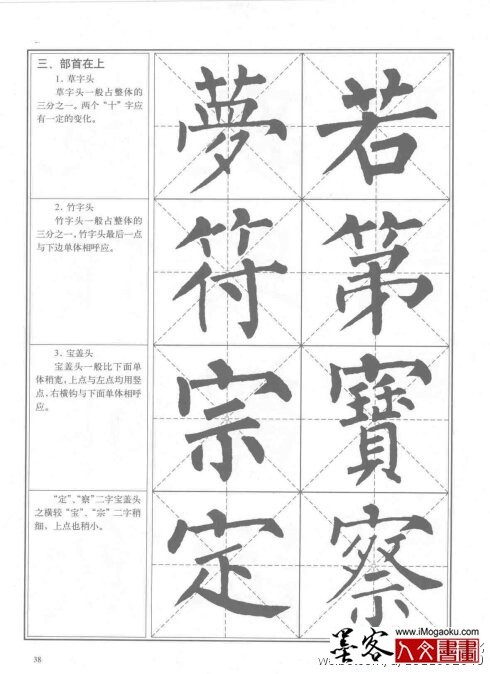 三、部首在上
1. 草字头
草字头一般占整体的
三分之一。两个“十”字应
有一定的变化。
夢 若
2. 竹字头
竹字头一般占整体的
三分之一。竹字头最后一点
与下边单体相呼应。
符 第
3. 宝盖头
宝盖头一般比下面单
体稍宽，上点与左点均用竖
点，右横钩与下面单体相呼
应。
宗 寶
“定”、“察”二字宝盖头
之横较“宝”、“宗”二字稍
细，上点也稍小。
定 察
38
墨客
www.iMogaoku.com
人文書畫